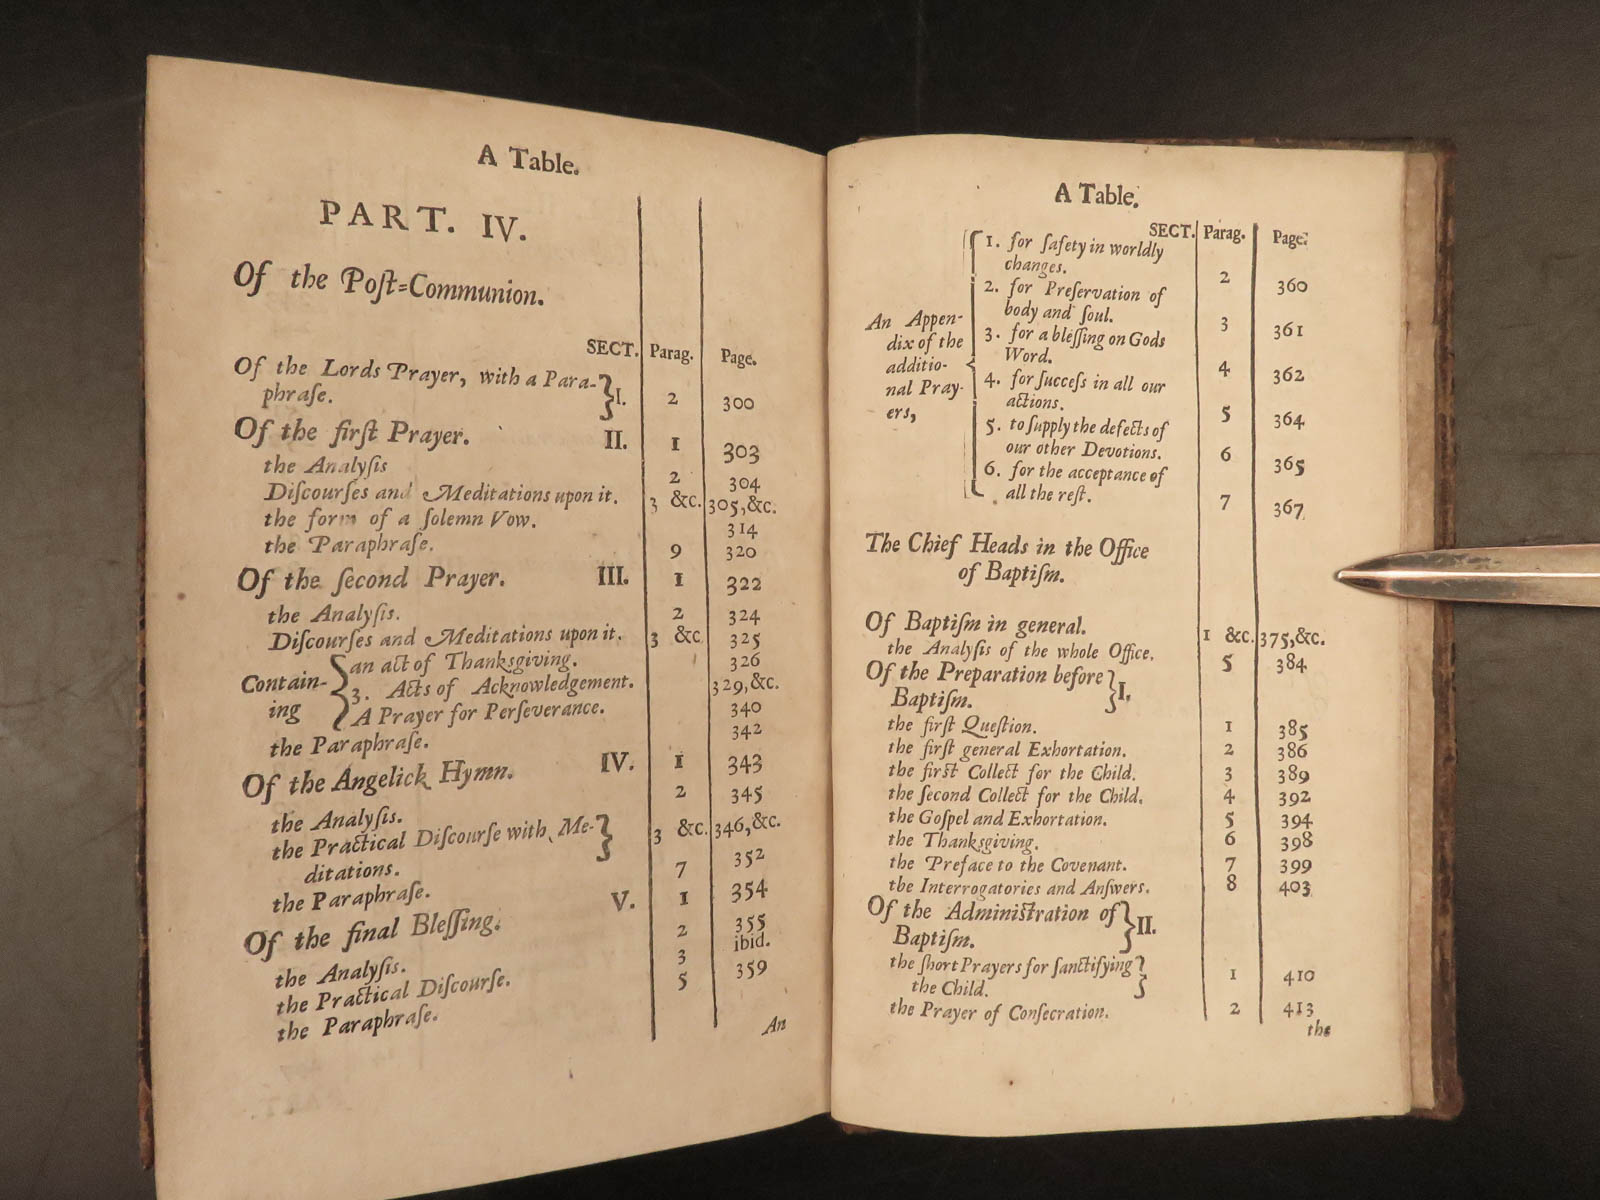 A Table.
PART. IV.
Of the Poſt-Communion.
SECT. Parag. Page.
Of the Lords Prayer, with a Para-
phraſe. } I. 2 300
Of the firſt Prayer. II. 1 303
the Analyſis 2 304
Diſcourſes and Meditations upon it. 3 &c. 305,&c.
the form of a ſolemn Vow. 314
the Paraphraſe. 9 320
Of the ſecond Prayer. III. 1 322
the Analyſis. 2 324
Diſcourſes and Meditations upon it. 3 &c. 325
Contain-
ing
{ an act of Thankſgiving. 326
3. Acts of Acknowledgement. 329,&c.
A Prayer for Perſeverance. 340
the Paraphraſe. 342
Of the Angelick Hymn. IV. 1 343
the Analyſis. 2 345
the Practical Diſcourſe with Me-
ditations. } 3 &c. 346,&c.
the Paraphraſe. 7 352
Of the final Bleſſing. V. 1 354
the Analyſis. 2 355
the Practical Diſcourſe. 3 ibid.
the Paraphraſe. 5 359
An
A Table.
SECT. Parag. Page.
An Appen-
dix of the
additio-
nal Pray-
ers,
1. for ſafety in worldly
changes. 2 360
2. for Preſervation of
body and ſoul. 3 361
3. for a bleſſing on Gods
Word. 4 362
4. for ſucceſs in all our
actions. 5 364
5. to ſupply the defects of
our other Devotions. 6 365
6. for the acceptance of
all the reſt. 7 367
The Chief Heads in the Office
of Baptiſm.
Of Baptiſm in general. 1 &c. 375,&c.
the Analyſis of the whole Office. 5 384
Of the Preparation before
Baptiſm. } I.
the firſt Queſtion. 1 385
the firſt general Exhortation. 2 386
the firſt Collect for the Child. 3 389
the ſecond Collect for the Child. 4 392
the Goſpel and Exhortation. 5 394
the Thankſgiving. 6 398
the Preface to the Covenant. 7 399
the Interrogatories and Anſwers. 8 403
Of the Adminiſtration of
Baptiſm. } II.
the ſhort Prayers for ſanctifying
the Child. } 1 410
the Prayer of Conſecration. 2 413
the